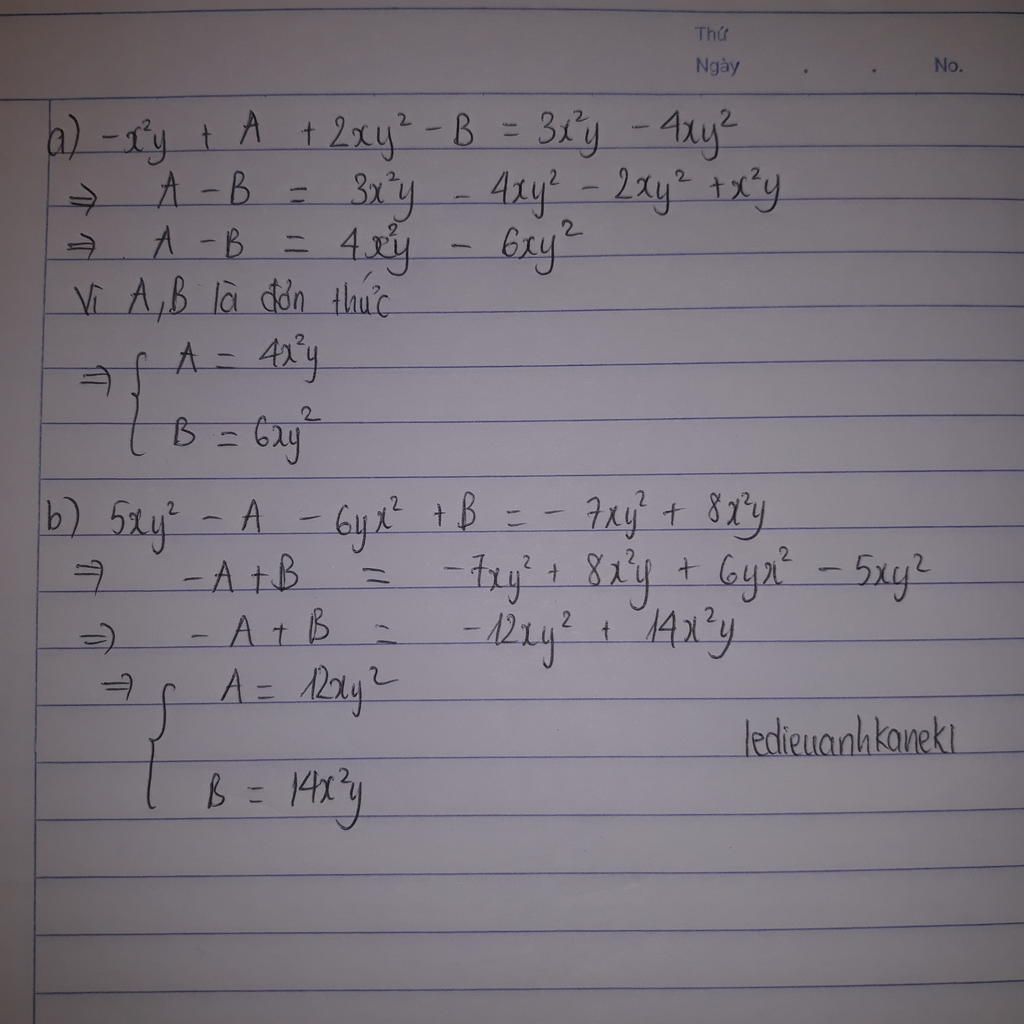 Thứ
Ngày . . No.
a) -x²y + A + 2xy² - B = 3x²y - 4xy²
⇒ A - B = 3x²y - 4xy² - 2xy² + x²y
⇒ A - B = 4x²y - 6xy²
Vì A, B là đơn thức
⇒ { A = 4x²y
B = 6xy²
b) 5xy² - A - 6yx² + B = - 7xy² + 8x²y
⇒ -A + B = -7xy² + 8x²y + 6yx² - 5xy²
⇒ - A + B = -12xy² + 14x²y
⇒ { A = 12xy²
ledieuanhkaneki
B = 14x²y